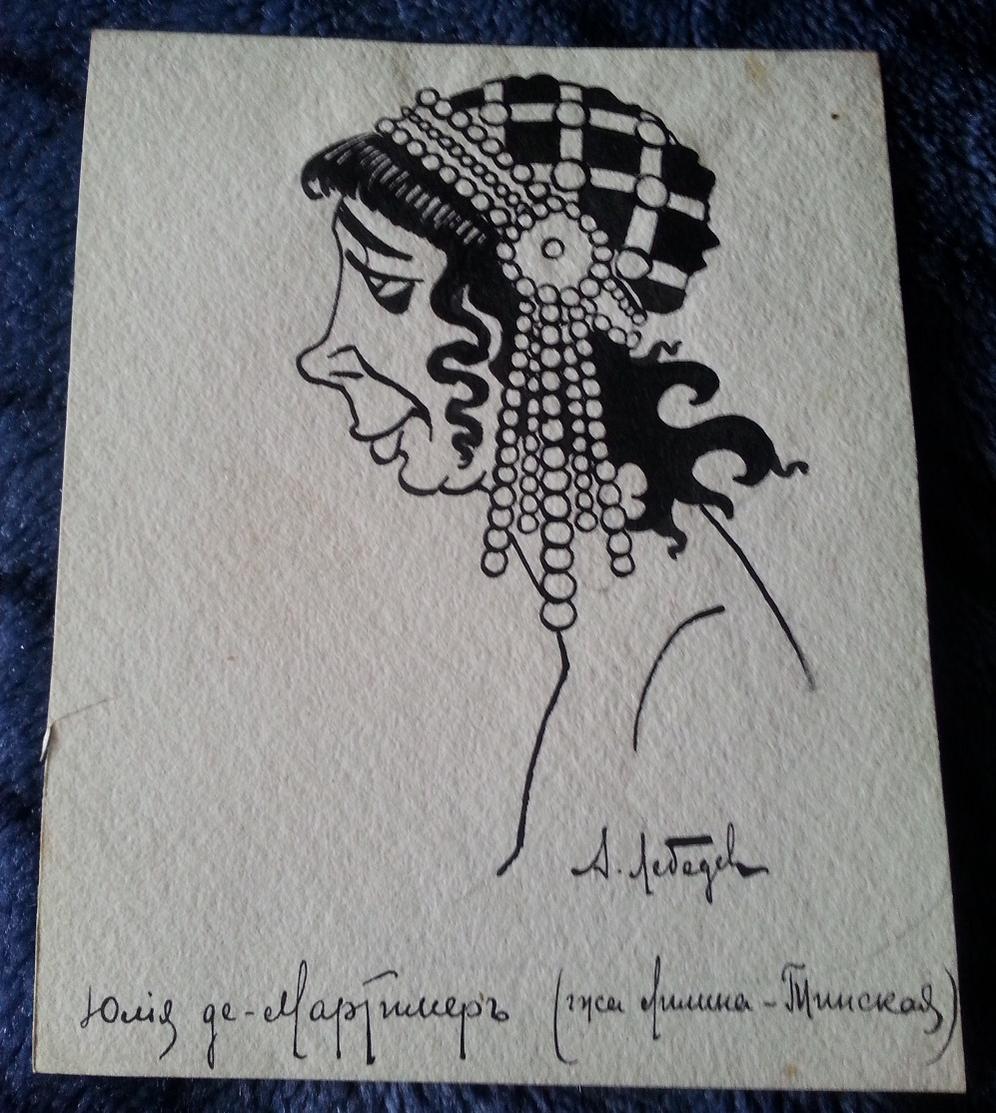 А. Лебедев
Юлія де-Мартимеръ (г-жа Лилина-Тинская)